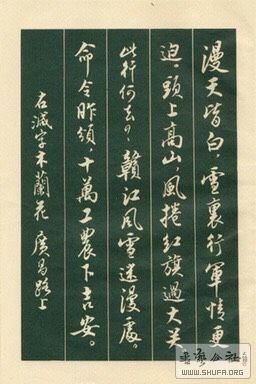 漫天皆白，雪裏行軍情更
迫。頭上高山，風捲紅旗過大关
此行何去？贛江風雪迷漫處。
命令昨頒，十萬工農下吉安。
右減字木蘭花 廣昌路上
WWW.SHUFA.ORG